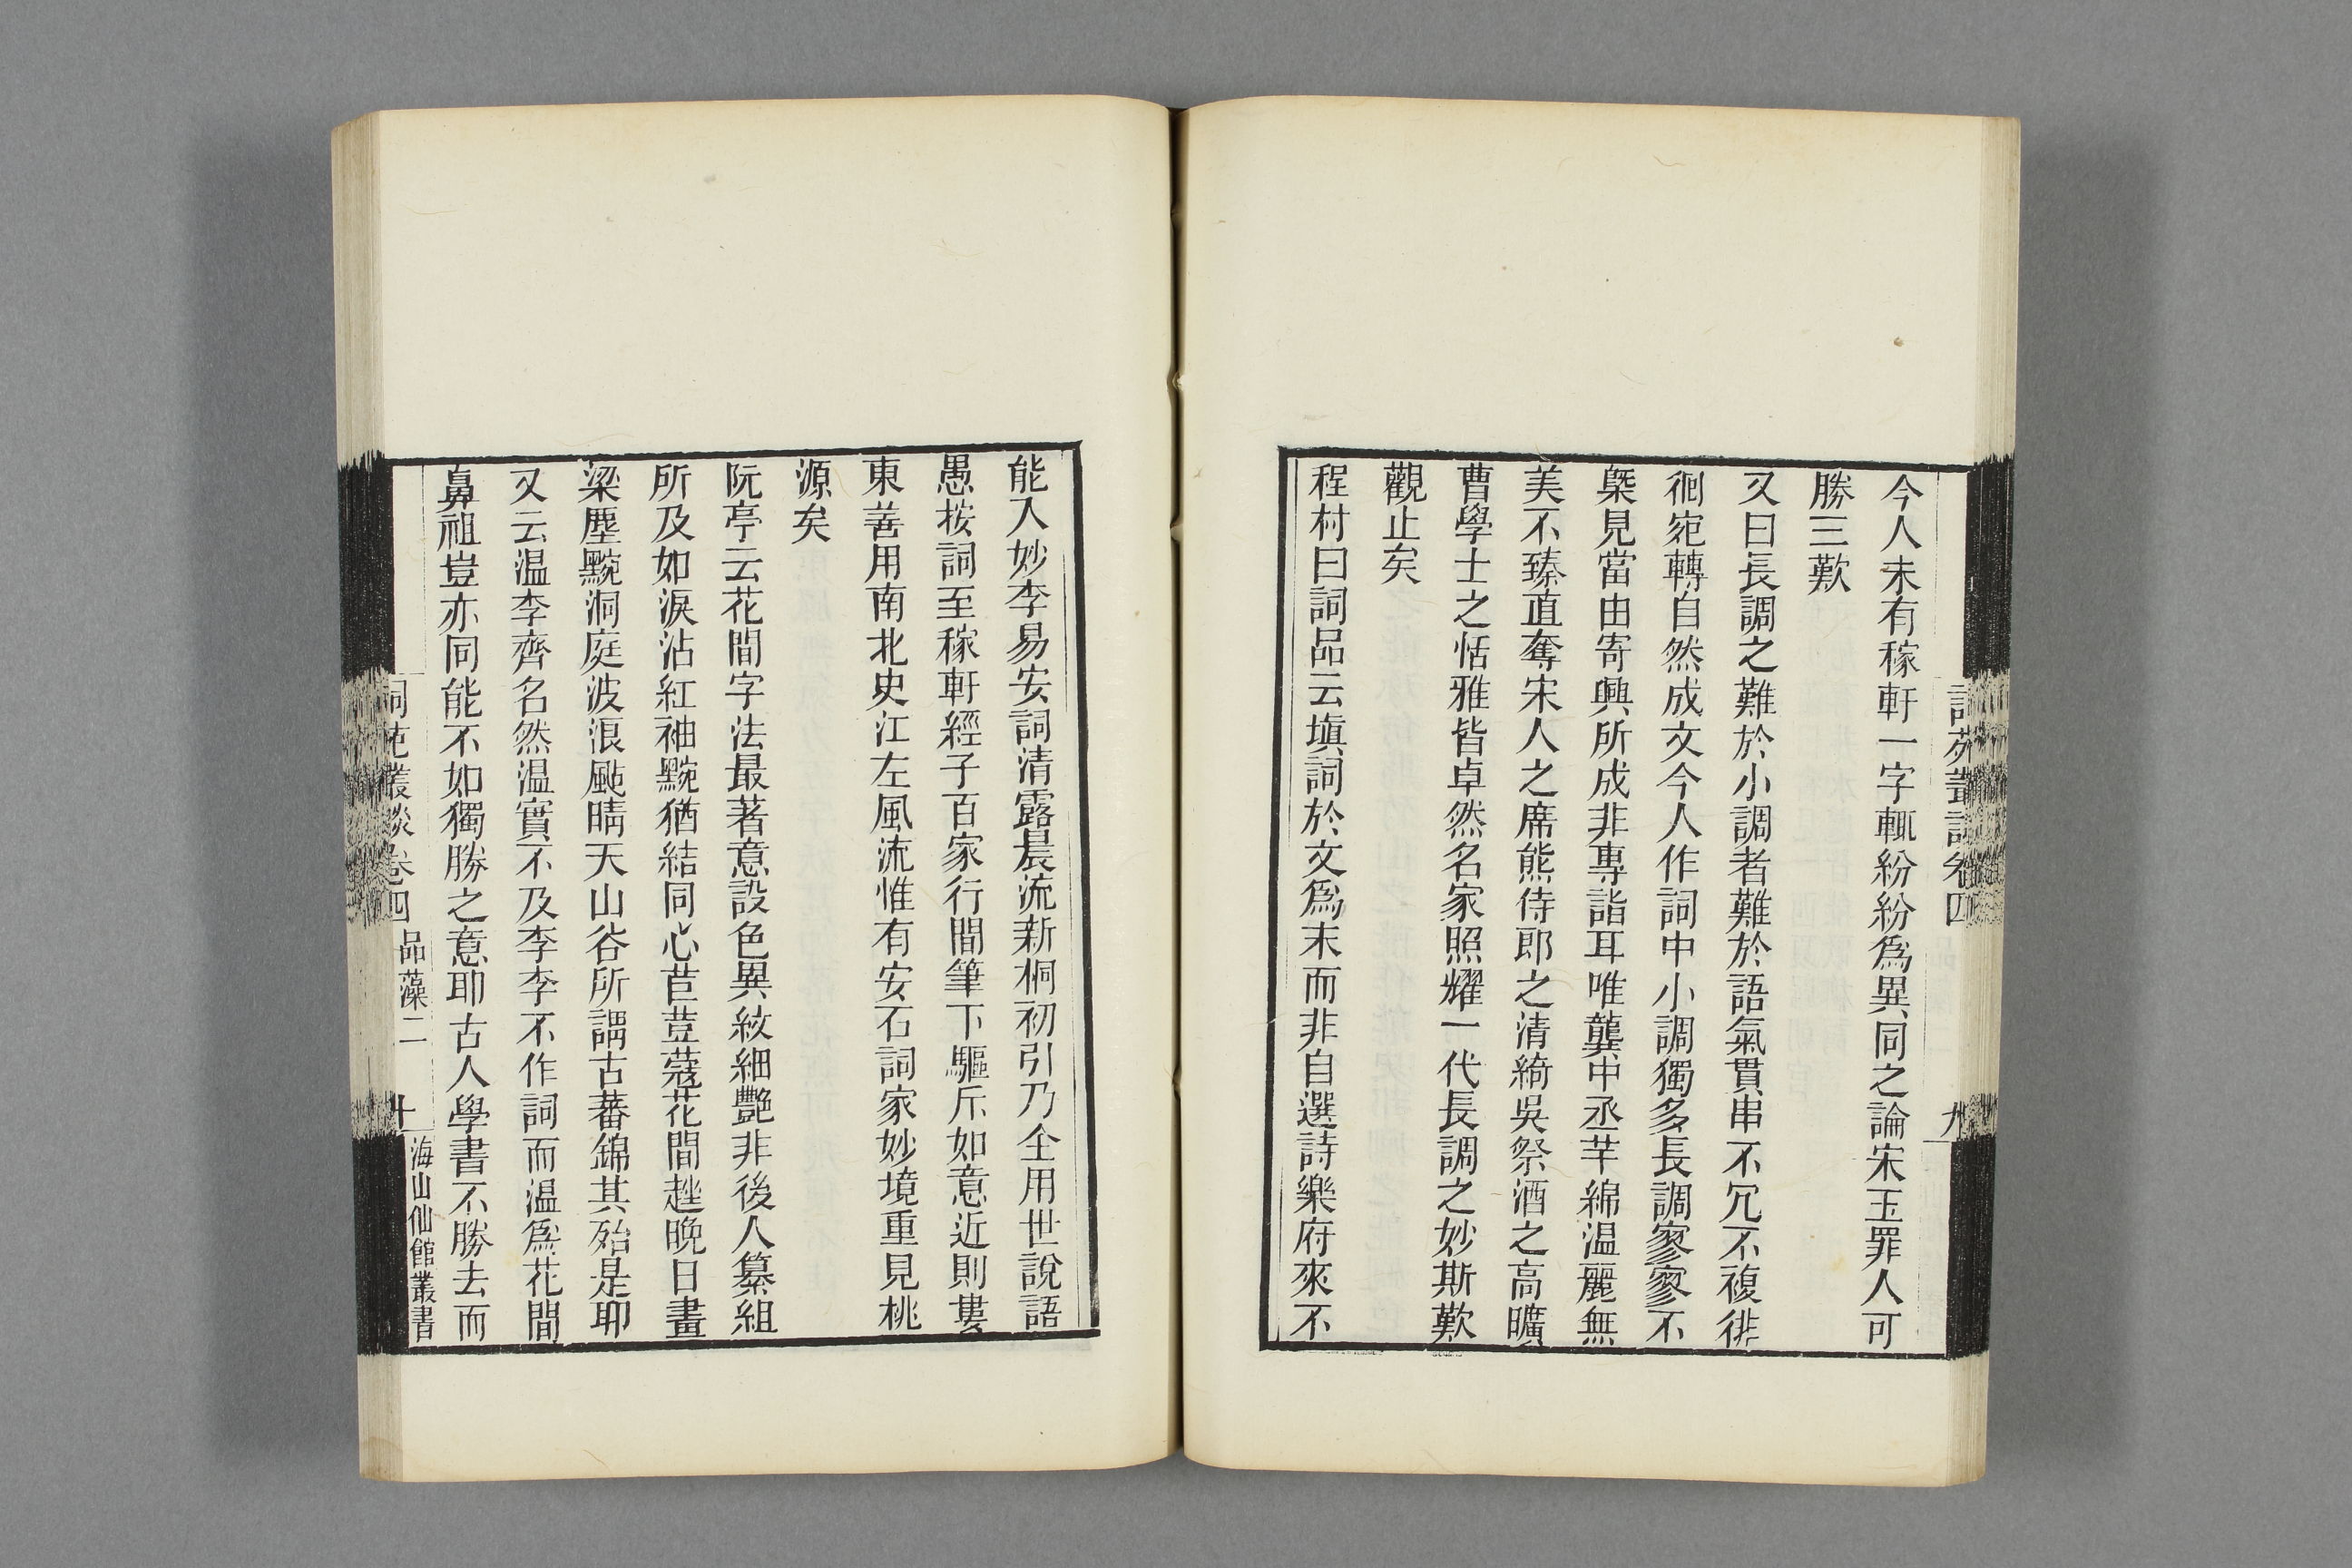 今人未有稼軒一字輒紛紛爲異同之論宋玉罪人可
勝三歎
又曰長調之難於小調者難於語氣貫串不冗不複徘
徊宛轉自然成文今人作詞中小調獨多長調寥寥不
槩見當由寄興所成非專詣耳唯龔中丞芊綿温麗無
美不臻直奪宋人之席熊侍郎之清綺吳祭酒之高曠
曹學士之恬雅皆卓然名家照耀一代長調之妙斯歎
觀止矣
程村曰詞品云塡詞於文爲末而非自選詩樂府來不
詞苑叢談卷四
九
能入妙李易安詞清露晨流新桐初引乃全用世說語
愚按詞至稼軒經子百家行間筆下驅斥如意近則婁
東善用南北史江左風流惟有安石詞家妙境重見桃
源矣
阮亭云花間字法最著意設色異紋細艷非後人纂組
所及如淚沾紅袖黦猶結同心苣荳蔻花間趖晚日畫
梁塵黦洞庭波浪颭晴天山谷所謂古蕃錦其殆是耶
又云温李齊名然温實不及李李不作詞而温爲花間
鼻祖豈亦同能不如獨勝之意耶古人學書不勝去而
詞苑叢談卷四 品藻二 十 海山仙館叢書